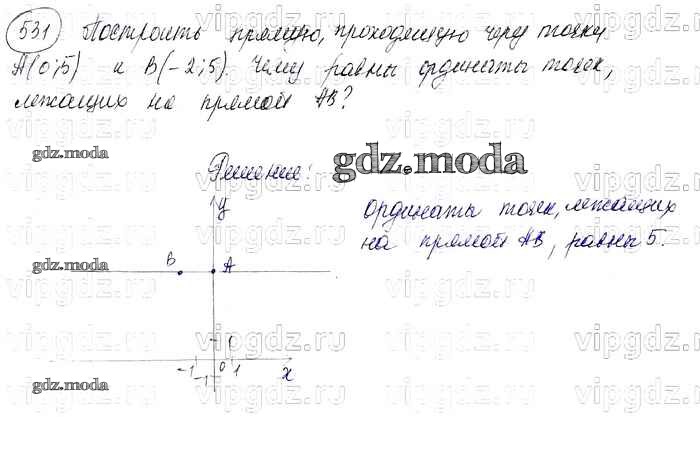 531 Построить прямую, проходящую через точки
A(0;5) и B(-2;5) Чему равны ординаты точек,
лежащих на прямой AB?
gdz.moda
Решение:
gdz.moda
y
ординаты точек, лежащих
на прямой AB, равны 5.
B
A
gdz.moda
-1 0 1
-1
x
gdz.moda
vipgdz.ru